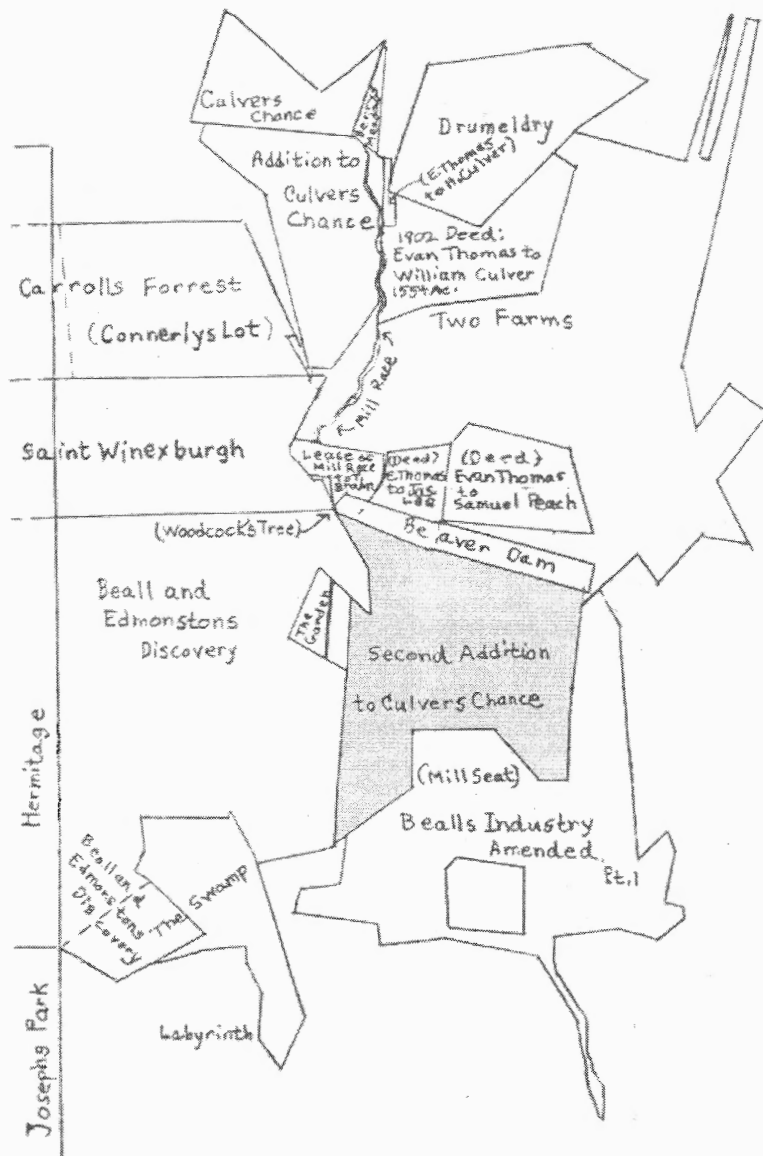 Culvers
Chance
Drumeldry
(E. Thomas
to H. Culver)
Addition to
Culvers
Chance
1802 Deed:
Evan Thomas to
William Culver
155+ Ac.
Carrolls Forrest
(Connerlys Lot)
Two Farms
Mill Race
Saint Winexburgh
Lease of
Mill Race
to
(Deed)
E. Thomas
to Jas.
Lee
(Deed)
Evan Thomas
to
Samuel Peach
(Woodcock's Tree)
Beaver Dam
Beall and
Edmonstons
Discovery
The Garden
Second Addition
to Culvers Chance
Hermitage
(Mill Seat)
Bealls Industry
Amended
Pt. 1
Beall and
Edmonstons
Discovery
The Swamp
Labyrinth
Josephs Park